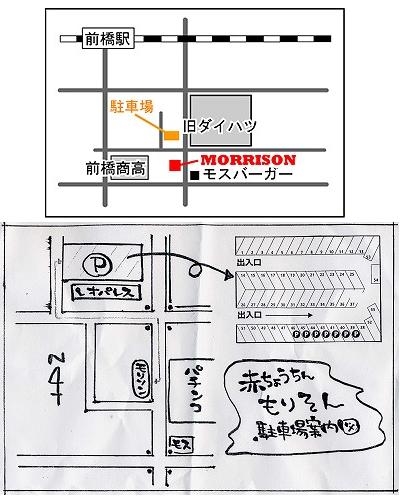 前橋駅
駐車場
旧ダイハツ
前橋商高
MORRISON
モスバーガー
P
レオパレス
出入口
出入口
P P P P P P P
モリソン
パチンコ
モス
赤ちょうちん
もりそん
駐車場案内図